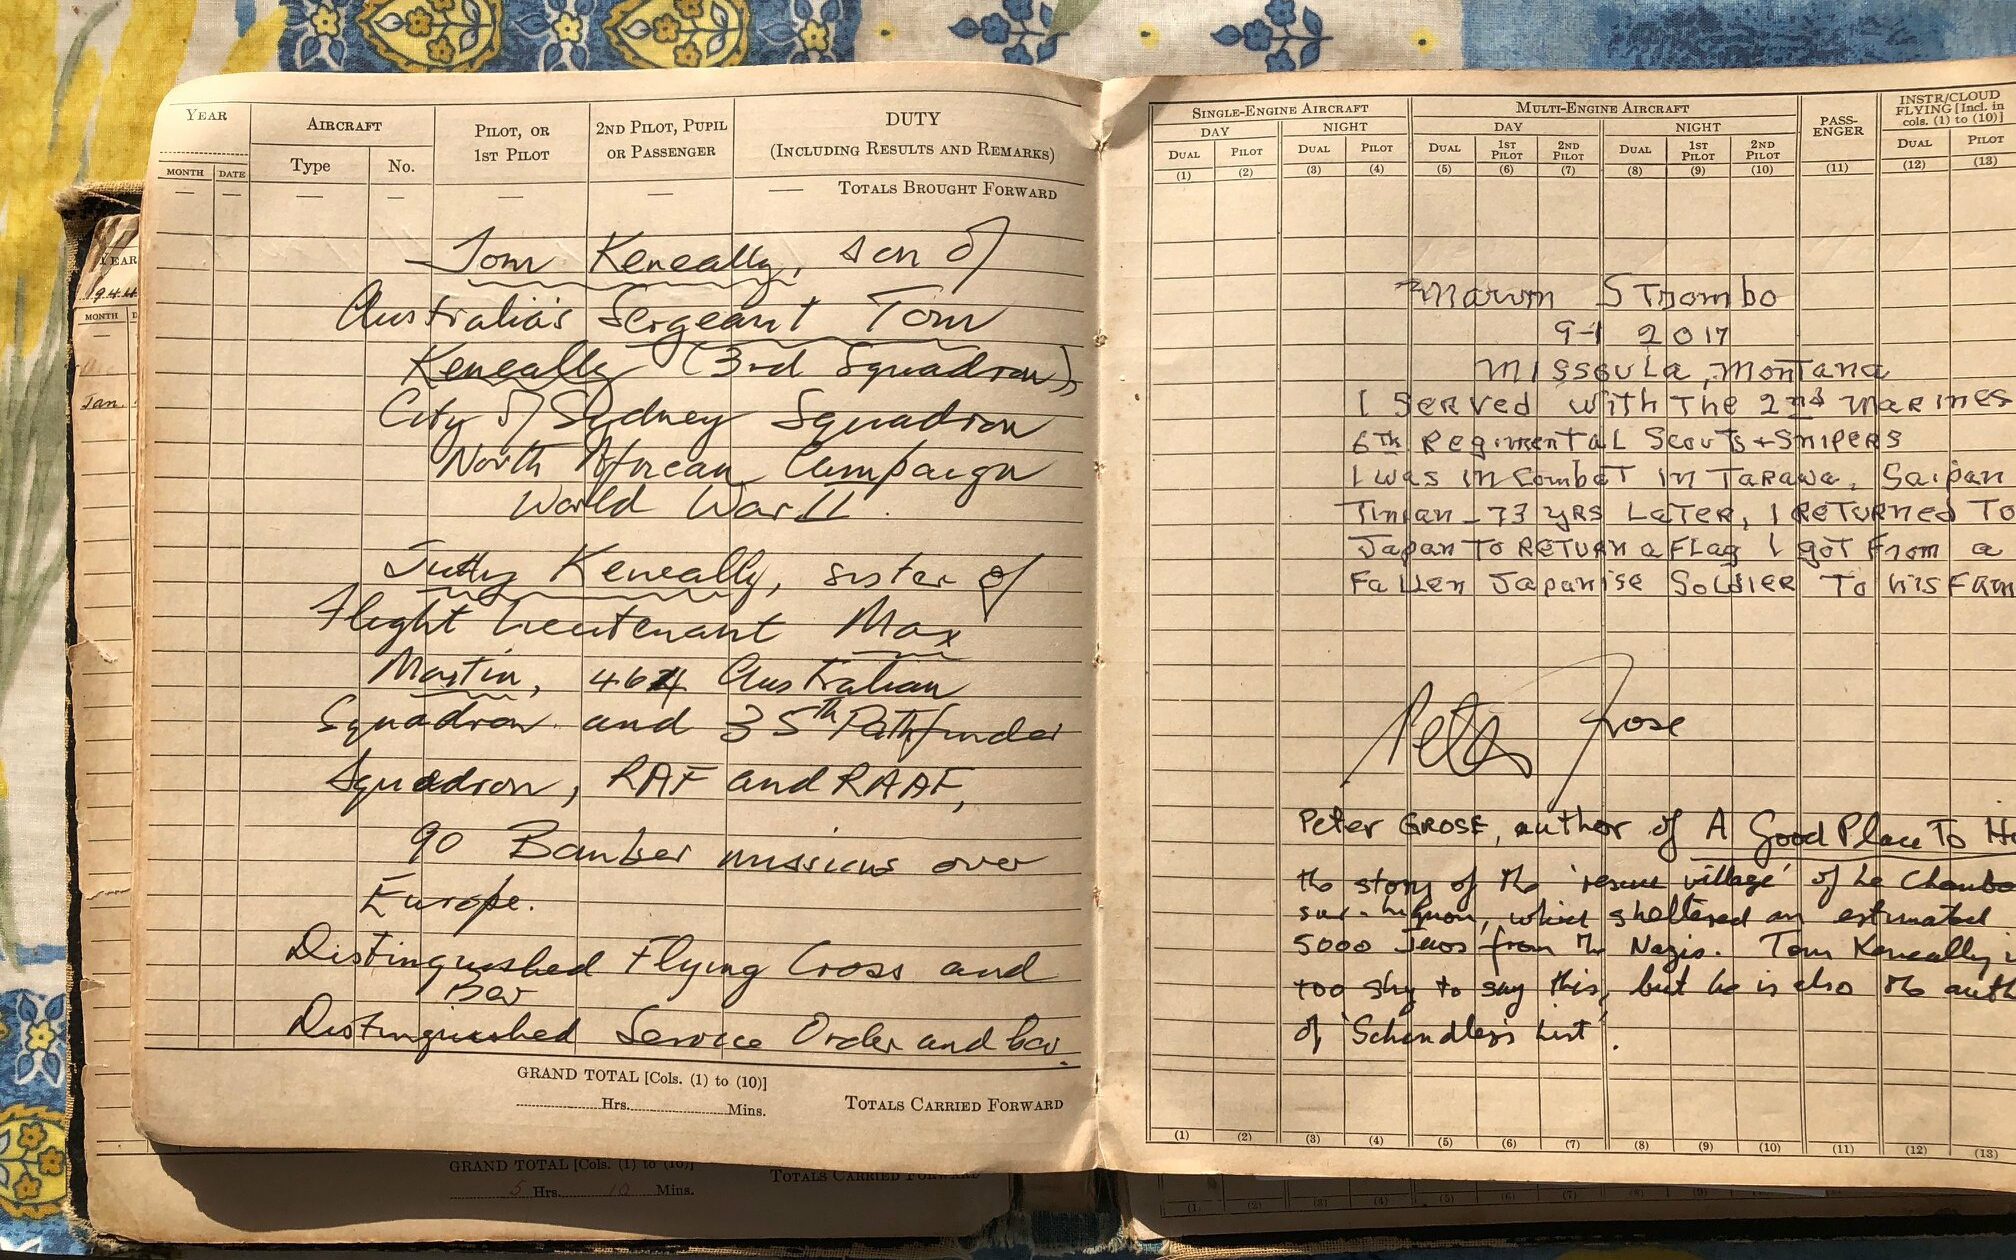 YEAR
AIRCRAFT
PILOT, OR
1ST PILOT
2ND PILOT, PUPIL
OR PASSENGER
DUTY
(INCLUDING RESULTS AND REMARKS)
Type
No.
MONTH
DATE
TOTALS BROUGHT FORWARD
Tom Keneally, son of
Australia's Sergeant Tom
Keneally (3rd Squadron),
City of Sydney Squadron
North African Campaign
World War II.
Judy Keneally, sister of
Flight Lieutenant Max
Martin, 464 Australian
Squadron and 35th Pathfinder
Squadron, RAF and RAAF,
90 Bomber missions over
Europe.
Distinguished Flying Cross and
Bar
Distinguished Service Order and bar.
GRAND TOTAL [Cols. (1) to (10)]
Hrs. Mins.
TOTALS CARRIED FORWARD
YEAR
1944
MONTH
Jan.
GRAND TOTAL [Cols. (1) to (10)]
5 Hrs. 10 Mins.
TOTALS CARRIED FORWARD
SINGLE-ENGINE AIRCRAFT
MULTI-ENGINE AIRCRAFT
PASS-
ENGER
INSTR/CLOUD
FLYING [Incl. in
cols. (1) to (10)]
DAY NIGHT DAY NIGHT
DUAL PILOT DUAL PILOT DUAL 1ST PILOT 2ND PILOT DUAL 1ST PILOT 2ND PILOT DUAL PILOT
(1) (2) (3) (4) (5) (6) (7) (8) (9) (10) (11) (12) (13)
Marvin STrombo
9-1 2017
MISSOULA, MONTANA
I SERVED WITH THE 2nd MARINES
6TH REGIMENTAL SCOUTS + SNIPERS
I WAS IN COMBAT IN TARAWA, Saipan
Tinian - 73 YRS LATER, I RETURNED TO
Japan TO RETURN a FLag I goT From a
FaLLEn Japanise SOLDIER TO his Fam
Peter Grose
Peter GROSE, author of A Good Place To H
the story of the 'rescue village' of Le Chambo
sur-Lignon, which sheltered an estimated
5000 Jews from the Nazis. Tom Keneally i
too shy to say this, but he is also the auth
of 'Schindler's List'.
(1) (2) (3) (4) (5) (6) (7) (8) (9) (10) (11) (12) (13)